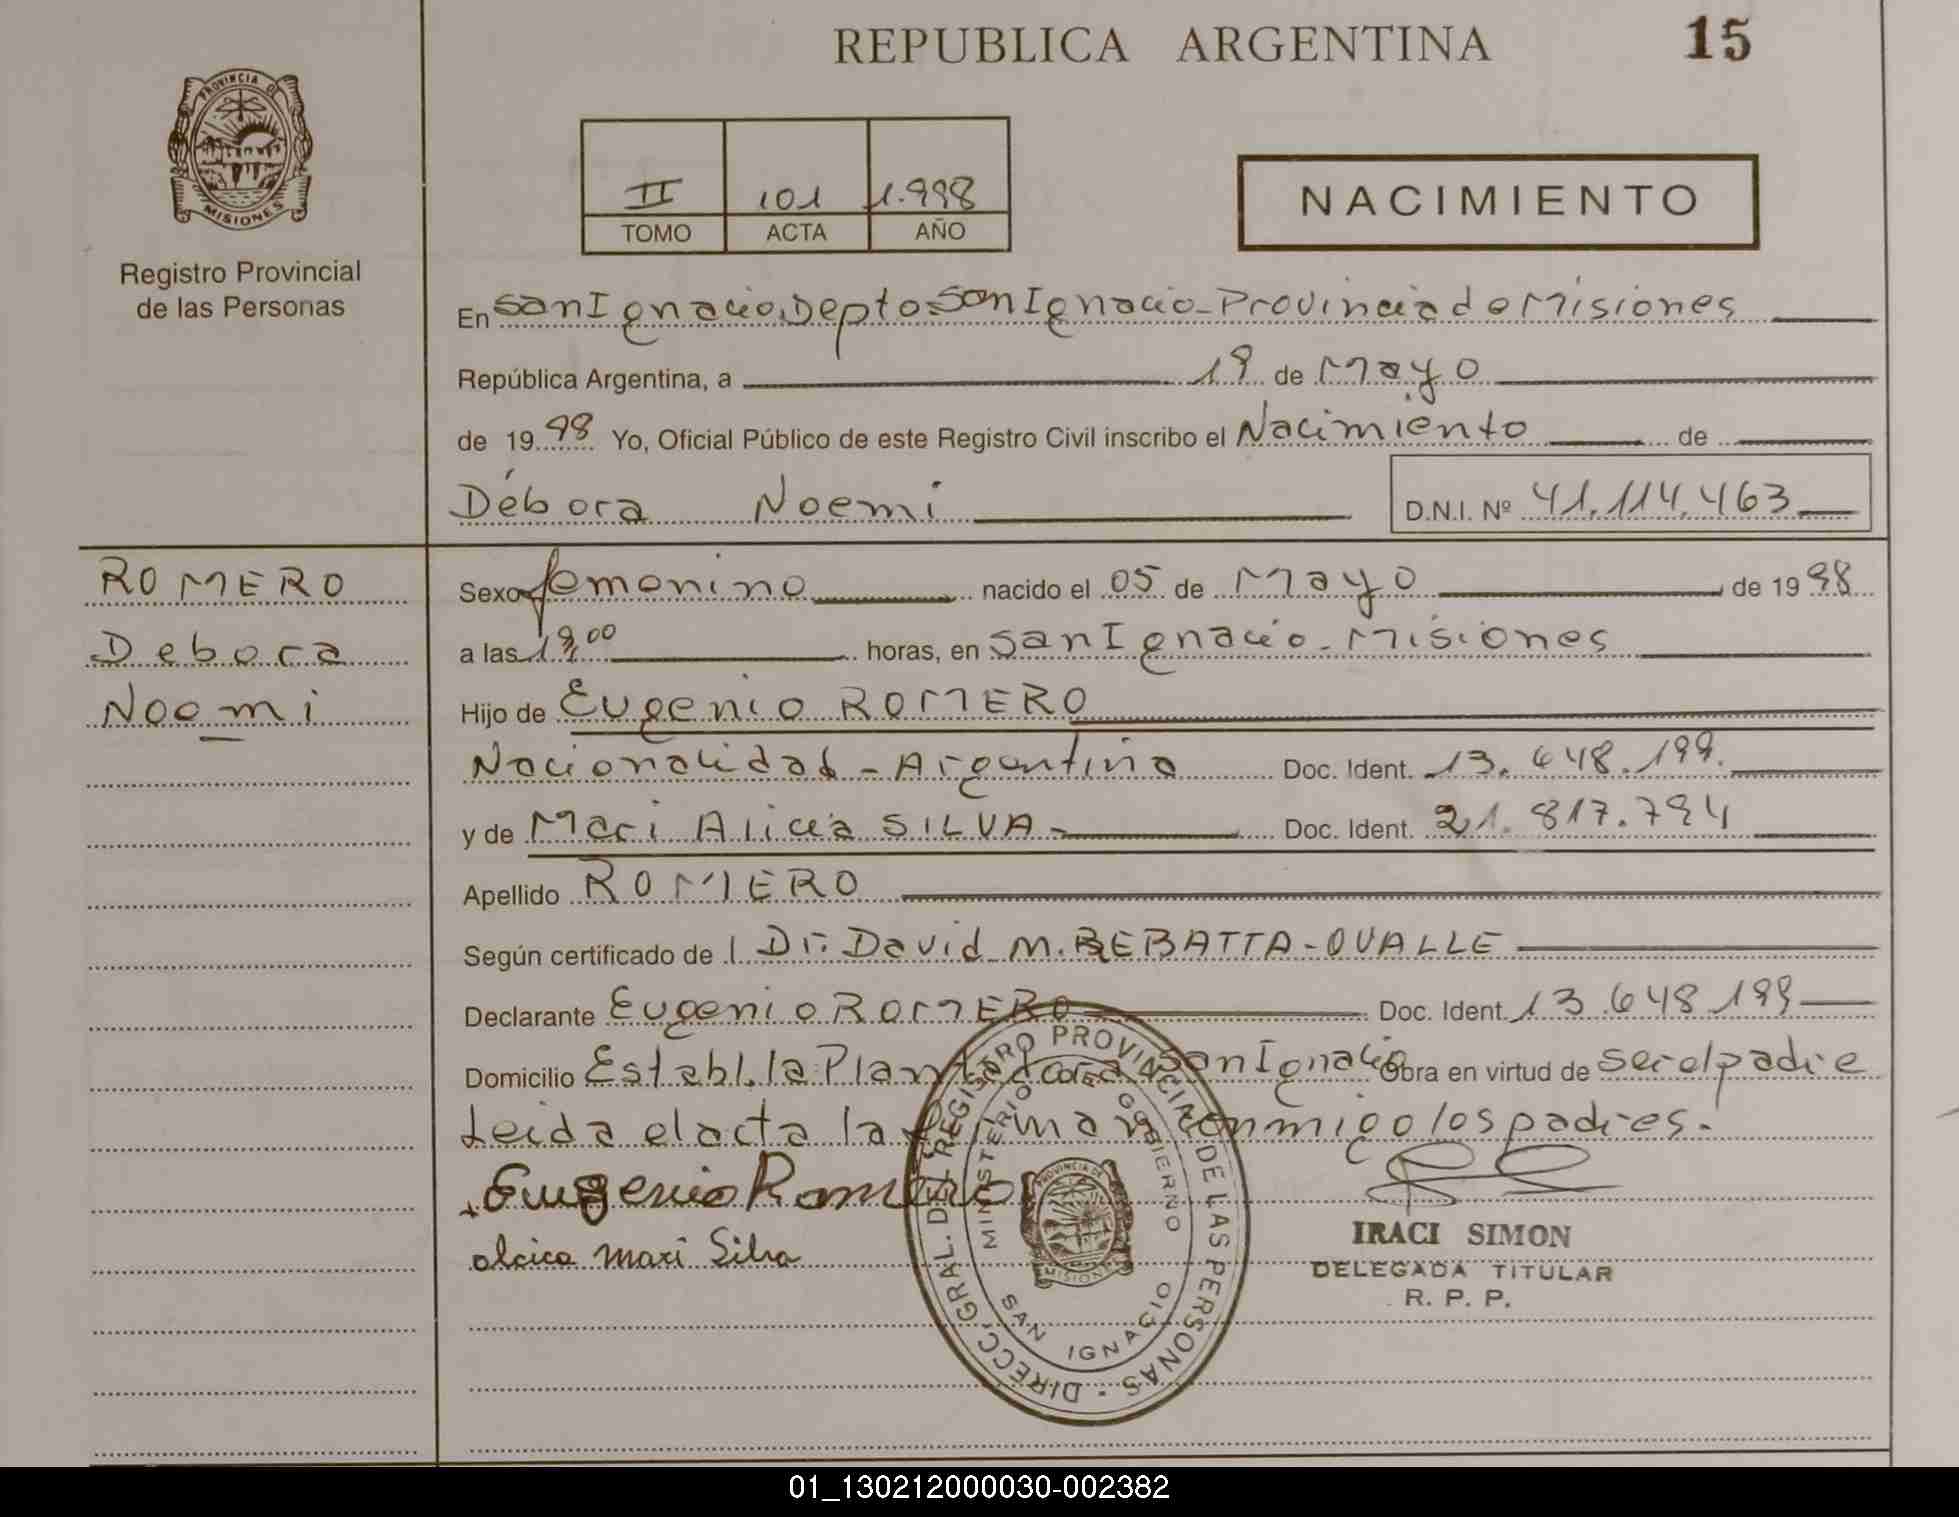 REPUBLICA ARGENTINA 15
PROVINCIA DE
MISIONES
Registro Provincial
de las Personas
II 101 1.998
TOMO ACTA AÑO
NACIMIENTO
En San Ignacio, Depto San Ignacio - Provincia de Misiones
República Argentina, a 19 de Mayo
de 1998 Yo, Oficial Público de este Registro Civil inscribo el Nacimiento de
Débora Noemi D.N.I. Nº 41.114.463
ROMERO
Debora
Noemi
Sexo femenino nacido el 05 de Mayo de 1998
a las 19,00 horas, en San Ignacio - Misiones
Hijo de Eugenio ROMERO
Nacionalidad - Argentina Doc. Ident. 13.648.199.
y de Mari Alicia SILVA - Doc. Ident. 21.817.794
Apellido ROMERO
Según certificado de Dr. David M. REBATTA - OVALLE
Declarante Eugenio ROMERO Doc. Ident. 13.648.199
Domicilio Establ. la Plantadora San Ignacio Obra en virtud de ser el padre
Leida el acta la firman conmigo los padres.
Eugenio Romero
alcica mari Silva
IRACI SIMON
DELEGADA TITULAR
R. P. P.
DIRECC. GRAL. DEL REGISTRO PROVINCIAL DE LAS PERSONAS -
MINISTERIO DE GOBIERNO
SAN IGNACIO
PROVINCIA DE
MISIONES
01_130212000030-002382